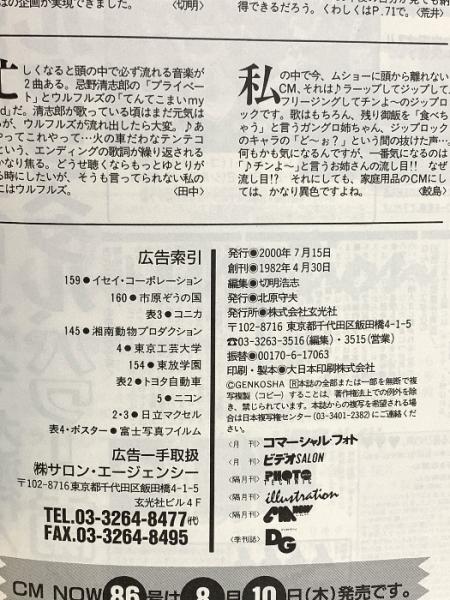 はの企画が実現できました。〈切明〉
得できるだろう。くわしくはP.71で。〈荒井〉
忙
しくなると頭の中で必ず流れる音楽が
2曲ある。忌野清志郎の「プライベー
ト」とウルフルズの「てんてこまいmy
d」だ。清志郎が歌っている頃はまだ元気は
が、ウルフルズが流れ出したら大変。♪あ
やってこれやって…火の車だわなテンテコ
という、エンディングの歌詞が繰り返される
かなり焦る。どうせ聴くならもっとゆとりが
る時にしたいが、そうも言ってられない私の
にはウルフルズ。〈田中〉
私
の中で今、ムショーに頭から離れない
CM、それは♪ラーップしてジップして、
フリージングしてチンよ〜のジップロ
ックです。歌はもちろん、残り御飯を「食べち
ゃう」と言うガングロ姉ちゃん、ジップロック
のキャラの「ど〜ぉ?」という間の抜けた声…。
何もかも気になるんですが、一番気になるのは
「♪チンよ〜」と言うお姉さんの流し目!! なぜ
流し目!? それにしても、家庭用品のCMにし
ては、かなり異色ですよね。〈鮫島〉
広告索引
159●イセイ・コーポレーション
160●市原ぞうの国
表3●コニカ
145●湘南動物プロダクション
4●東京工芸大学
154●東放学園
表2●トヨタ自動車
5●ニコン
2・3●日立マクセル
表4・ポスター●富士写真フイルム
広告一手取扱
㈱サロン・エージェンシー
〒102-8716東京都千代田区飯田橋4-1-5
玄光社ビル4F
TEL.03-3264-8477㈹
FAX.03-3264-8495
発行◉2000年7月15日
創刊◉1982年4月30日
編集◉切明浩志
発行◉北原守夫
発行所◉株式会社玄光社
〒102-8716 東京都千代田区飯田橋4-1-5
☎03-3263-3516(編集)・3515(営業)
振替◉00170-6-17063
印刷・製本◉大日本印刷株式会社
©GENKOSHA Ⓡ本誌の全部または一部を無断で複
写複製(コピー)することは、著作権法上での例外を除
き、禁じられています。本誌からの複写を希望される場合
は日本複写権センター(03-3401-2382)にご連絡くださ
い。
〈月刊〉コマーシャル・フォト
〈月刊〉ビデオSALON
〈隔月刊〉PHOTO
〈隔月刊〉illustration
〈隔月刊〉CM NOW
〈季刊誌〉DG
CM NOW 86号は8月10日(木)発売です。